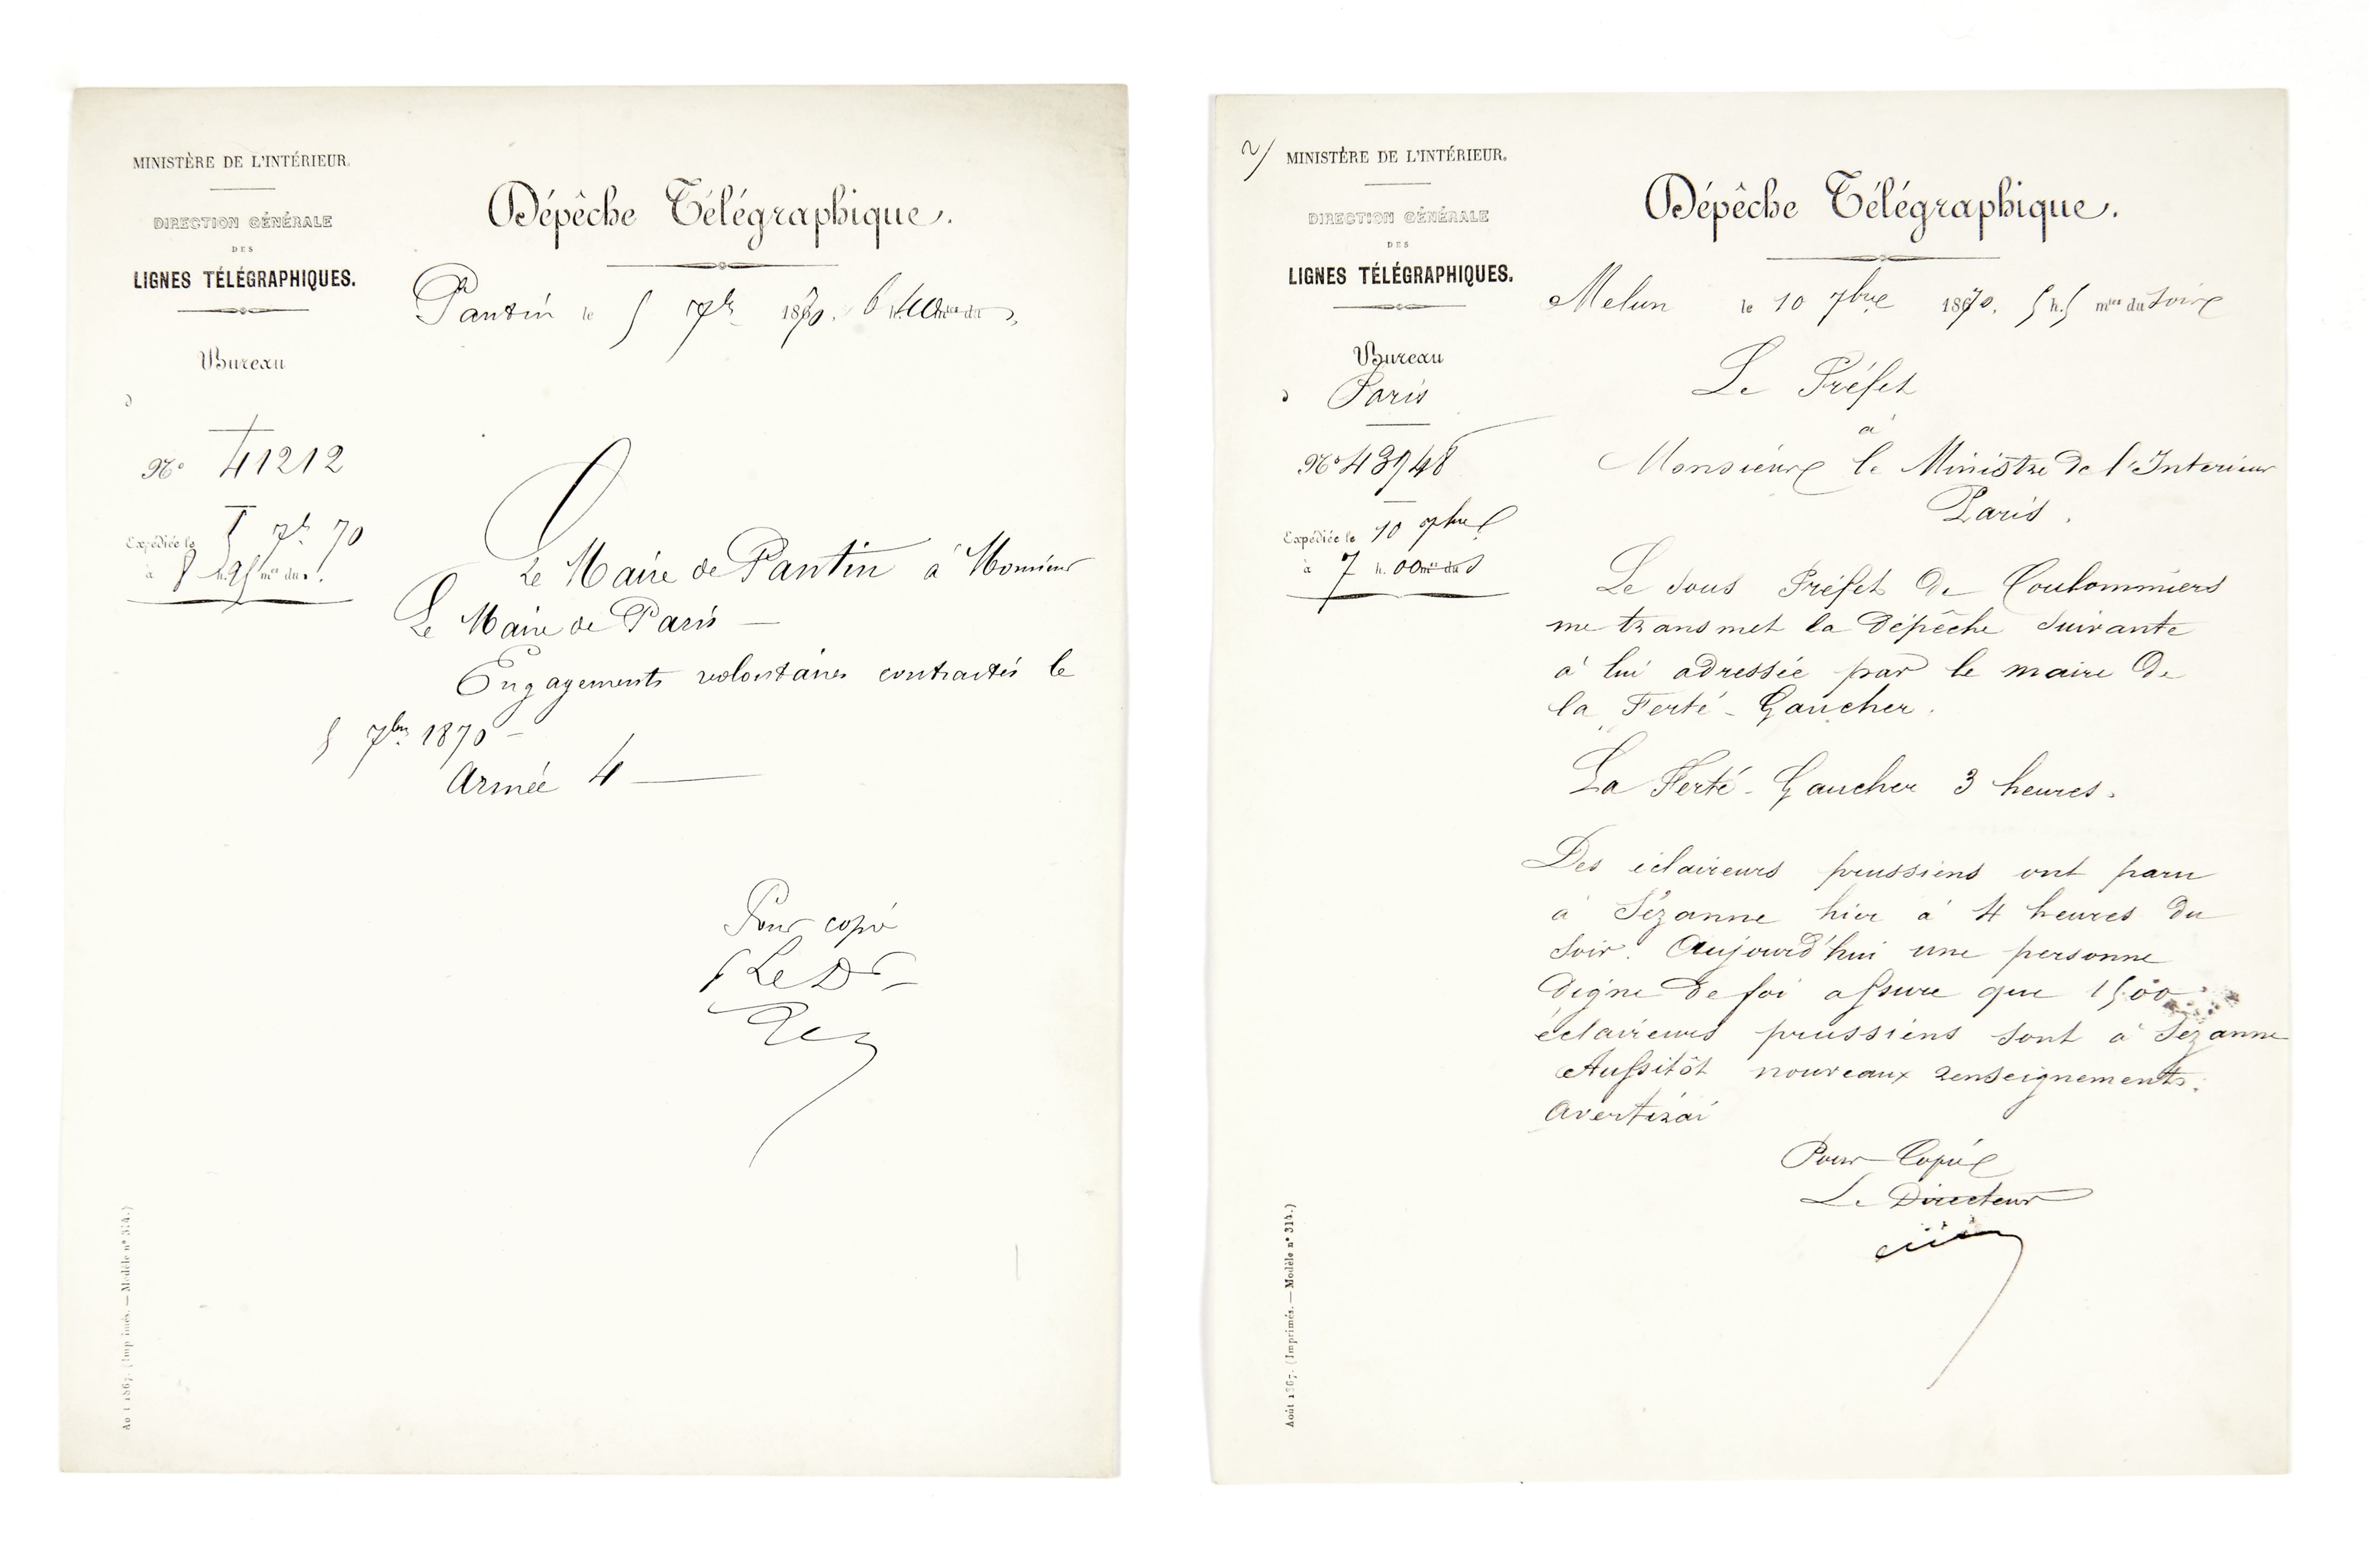 MINISTÈRE DE L'INTÉRIEUR.
DIRECTION GÉNÉRALE
DES
LIGNES TÉLÉGRAPHIQUES.
Dépêche Télégraphique.
Pantin le 5 7bre 1870. 6 h. 40 mtes du s
Bureau
d
N° 41212
Expédiée le 5 7b 70
à 8 h. 25 mtes du s.
Le Maire de Pantin à Monsieur
Le Maire de Paris —
Engagements volontaires contractés le
5 7bre 1870 —
Armée 4 —
Pour copie
Le Dr
Août 1867. (Imprimés. — Modèle n° 314.)
2/
MINISTÈRE DE L'INTÉRIEUR.
DIRECTION GÉNÉRALE
DES
LIGNES TÉLÉGRAPHIQUES.
Dépêche Télégraphique.
Melun le 10 7bre 1870. 5 h. 5 mtes du soir
Bureau
d Paris
N° 43948
Expédiée le 10 7bre
à 7 h. 00 mtes du s
Le Préfet
à
Monsieur le Ministre de l'Interieur
Paris.
Le Sous Préfet de Coulommiers
me transmet la Dépêche Suivante
à lui adressée par le maire de
la Ferté-Gaucher.
La Ferté-Gaucher 3 heures.
Des éclaireurs prussiens ont paru
à Sézanne hier à 4 heures du
soir. Aujourd'hui une personne
digne de foi assure que 1500
éclaireurs prussiens sont à Sézanne
Aussitôt nouveaux renseignements.
avertirai
Pour Copie
Le Directeur
Août 1867. (Imprimés. — Modèle n° 314.)